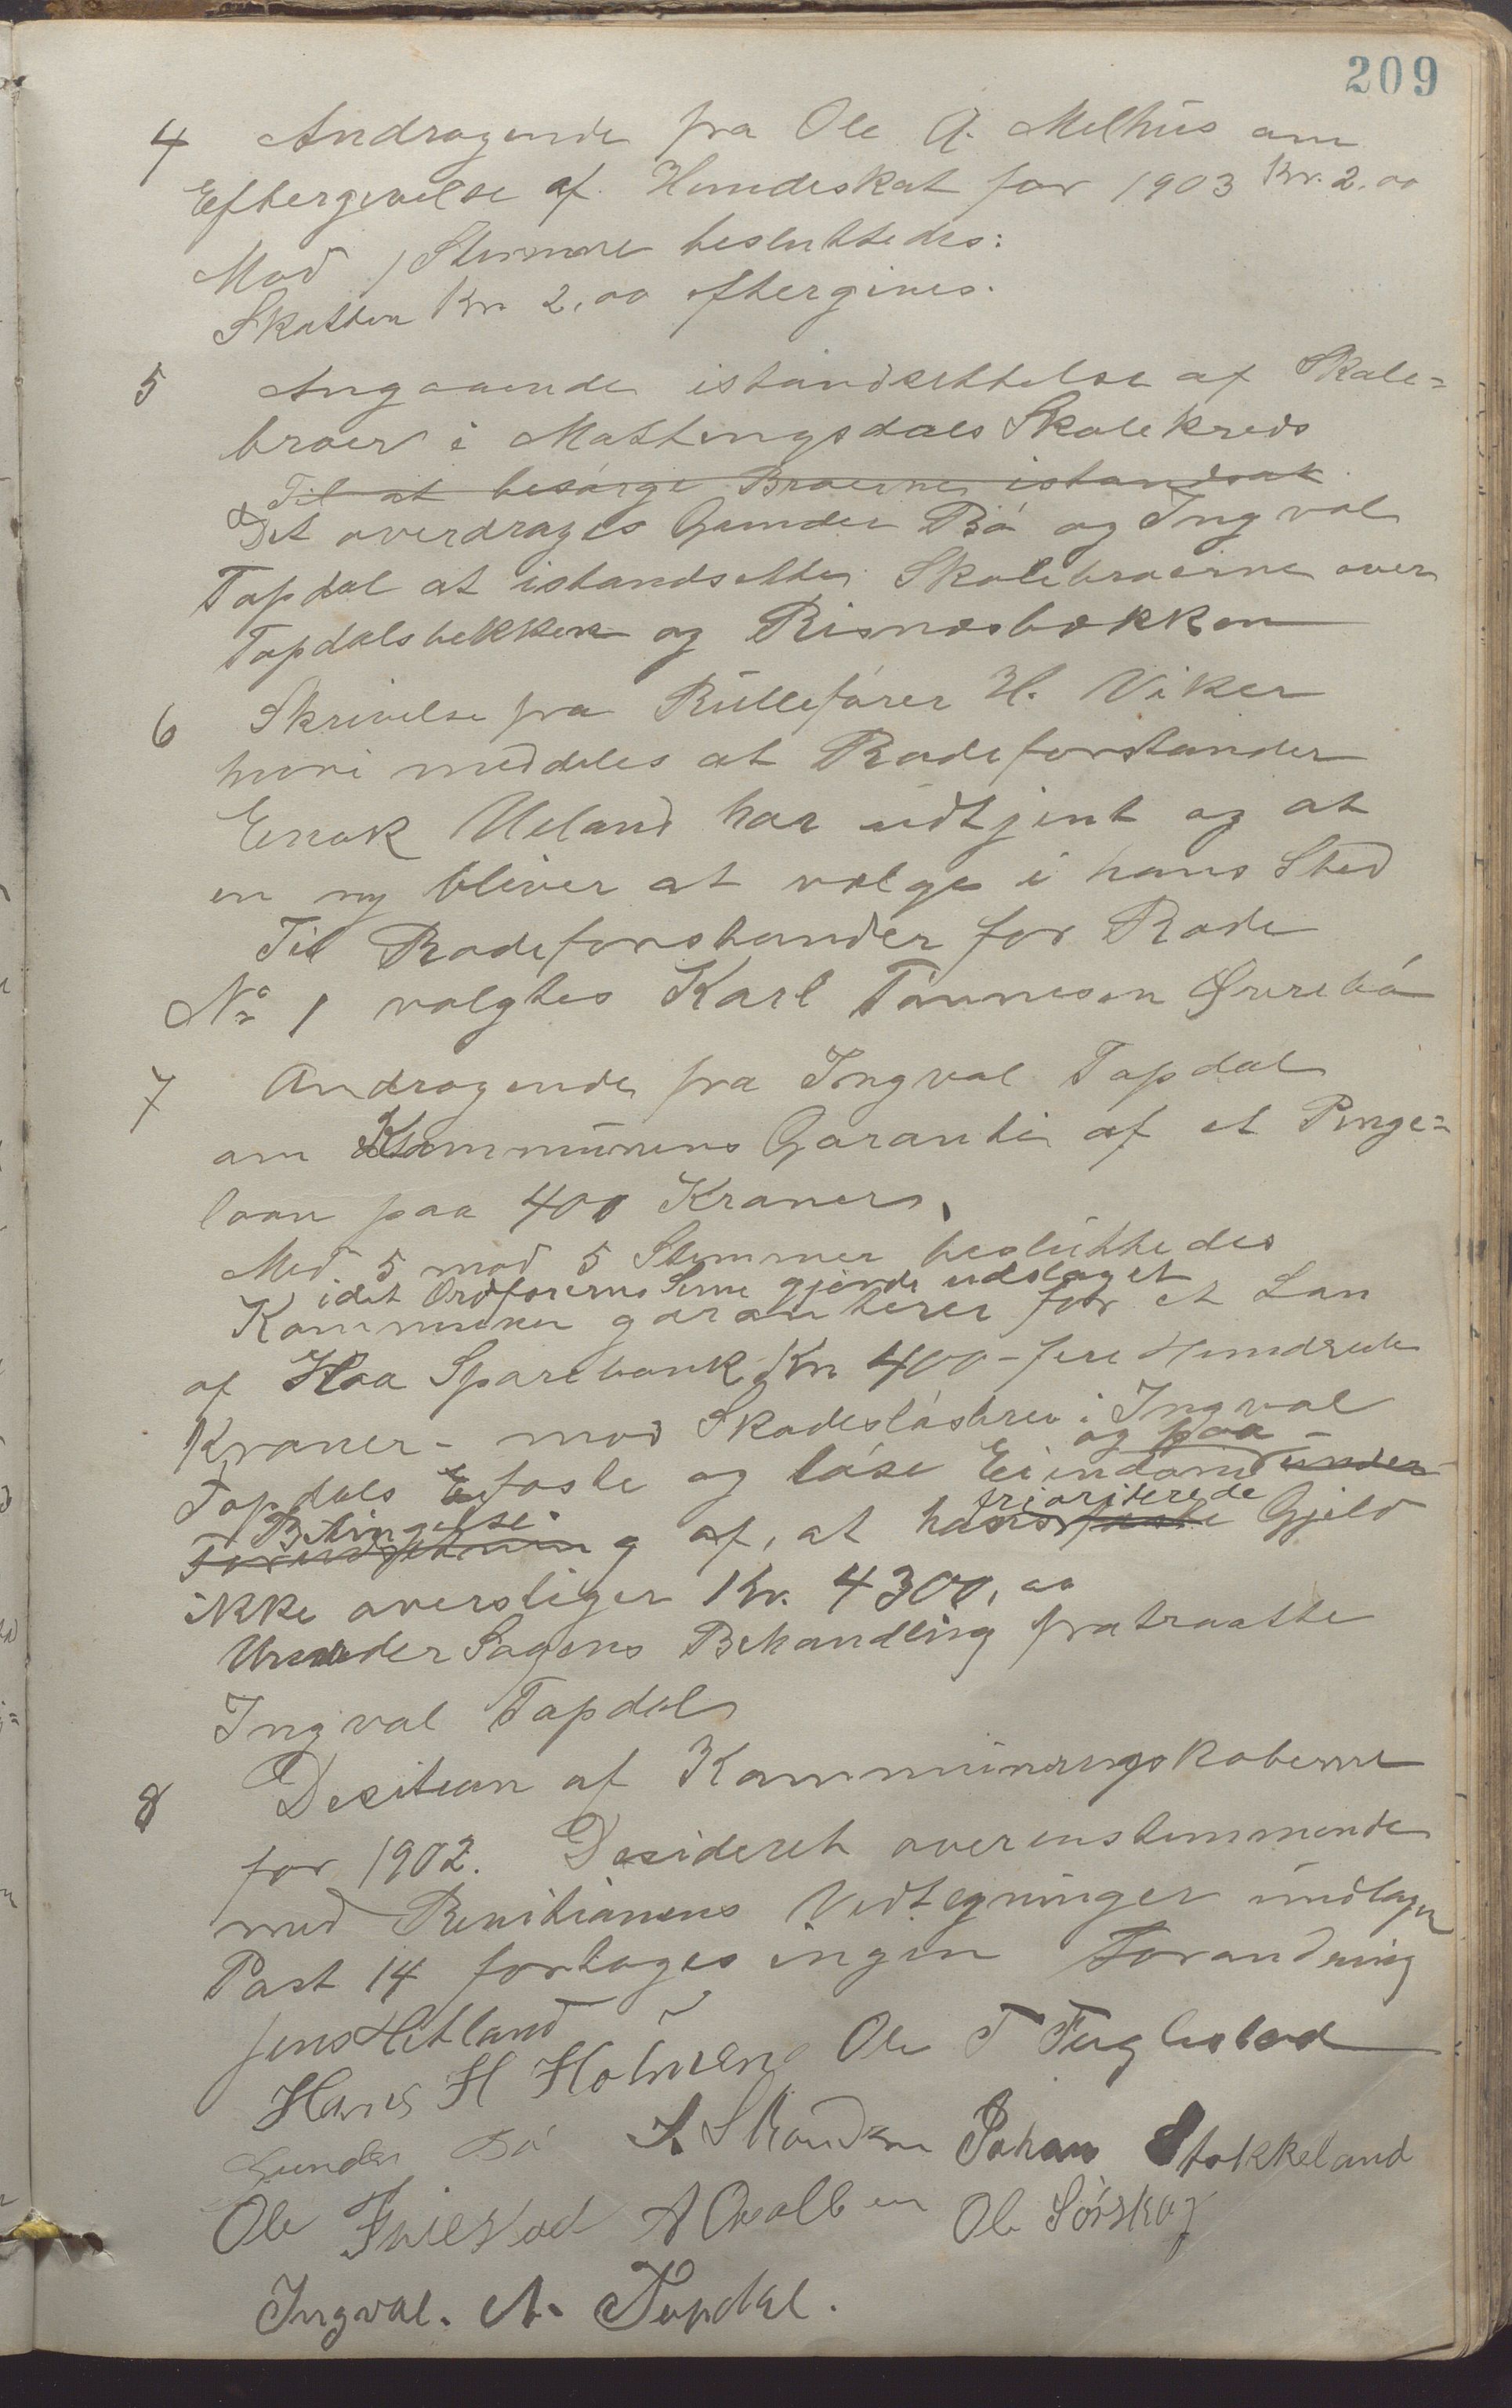 209
4 Andragende fra Ole A. Melhus om
Eftergivelse af Hundeskat for 1903 Kr. 2.00
Mod 1 Stemme besluttedes:
Skatten Kr 2,00 eftergives.
5 Angaaende istandsettelse af Skole=
broer i Mattingsdals Skolekreds
Til at besørge Broerne istandsat
Det overdrages Gunder Bø og Ingval
Topdal at istandsette Skolebroerne over
Topdalsbekken og Risnesbekken
6 Skrivelse fra Rulleforer H. Viker
hvori meddeles at Rodeforstander
Enok Ueland har udtjent og at
en ny bliver at velge i hans Sted
Til Rodeforstander for Rode
No 1 valgtes Karl Tønnesen Ørrebø
7 Andragende fra Ingval Topdal
om Kommunens Garanti af et Penge=
laan paa 400 Kroner.
Med 5 mod 5 Stemmer besluttedes
idet Ordførerens Seme gjorde udslaget
Kommunen garanterer for et Lan
af Haa Sparebank Kr 400 - fire Hundrede
Kroner - mod Skadesløsbrev i Ingval
og paa
Topdals faste og løse Eiendom under
Betingelse prioriterede
Forudsetning af, at hans faste Gjeld
ikke overstiger Kr. 4300,00
Under Sagens Behandling fratraatte
Ingval Topdal
8 Desition af Kommuneregnskaberne
for 1902. Desideret overenstemmende
med Revitionens Vedtegninger undtagen
Post 14 fortages ingen Forandring
Jens Hetland
Hans H Holmen Ole T Fuglestad
Gunder Bø Johan Stokkeland
Ole Fuglestad Ole Sørskog
Ingval. A. Topdal.